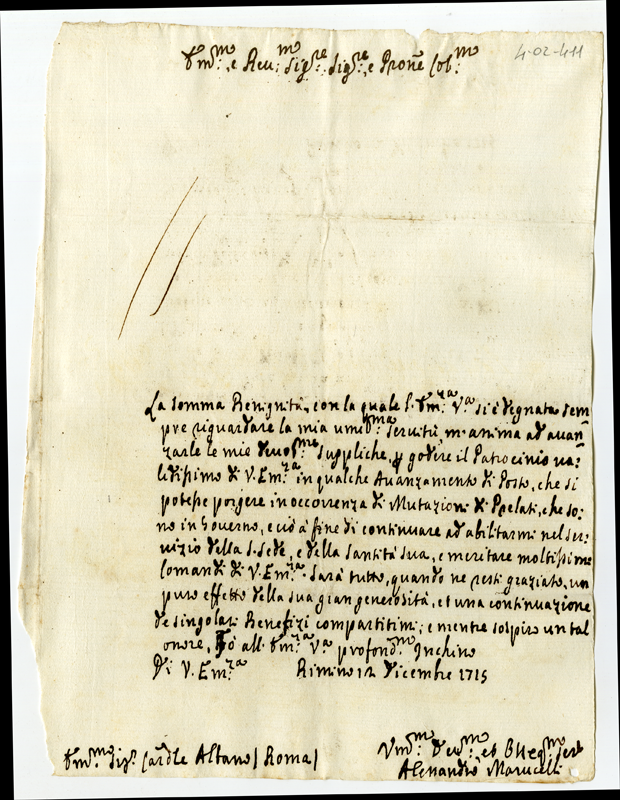 4-02-411
Em.mo e Reu.mo Sig.re Sig.re e Prone Col.mo
La somma Benignità, con la quale l'Em.za V.a si è degnata sem-
pre riguardare la mia umil.ma seruitù, m'anima ad auan-
zarle le mie deuot.me suppliche, p godere il Patrocinio ua-
lidissimo di V. Em.za in qualche Auanzamento di Posto, che si
potesse porgere in occorrenza di Mutazioni di Prelati, che so-
no in Gouerno, e ciò à fine di continuare ad abilitarmi nel ser-
uizio della S. Sede, e della Santità Sua, e meritare moltissimi
Comandi di V. Em.za Sarà tutto, quando ne resti graziato, un
puro effetto della sua gran generosità, et una continuazione
de singolari Benefizi compartitimi; e mentre sospiro un tal
onore, Fo all' Em.za V.a profond.mo Inchino
Di V. Em.za Rimino 12 Dicembre 1715
Em.mo Sig.r Cardle Albano / Roma /
Vm.mo Deu.mo et Obleq.mo Ser.e
Alessandro Marucelli